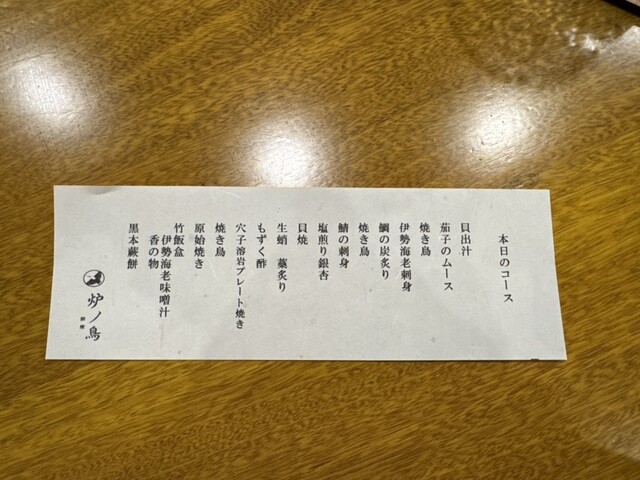 本日のコース
貝出汁
茄子のムース
焼き鳥
伊勢海老刺身
鯛の炭炙り
焼き鳥
鯖の刺身
塩煎り銀杏
貝焼
生蛸 藁炙り
もずく酢
穴子溶岩プレート焼き
焼き鳥
原始焼き
竹飯盒
伊勢海老味噌汁
香の物
黒本蕨餅
炉ノ鳥